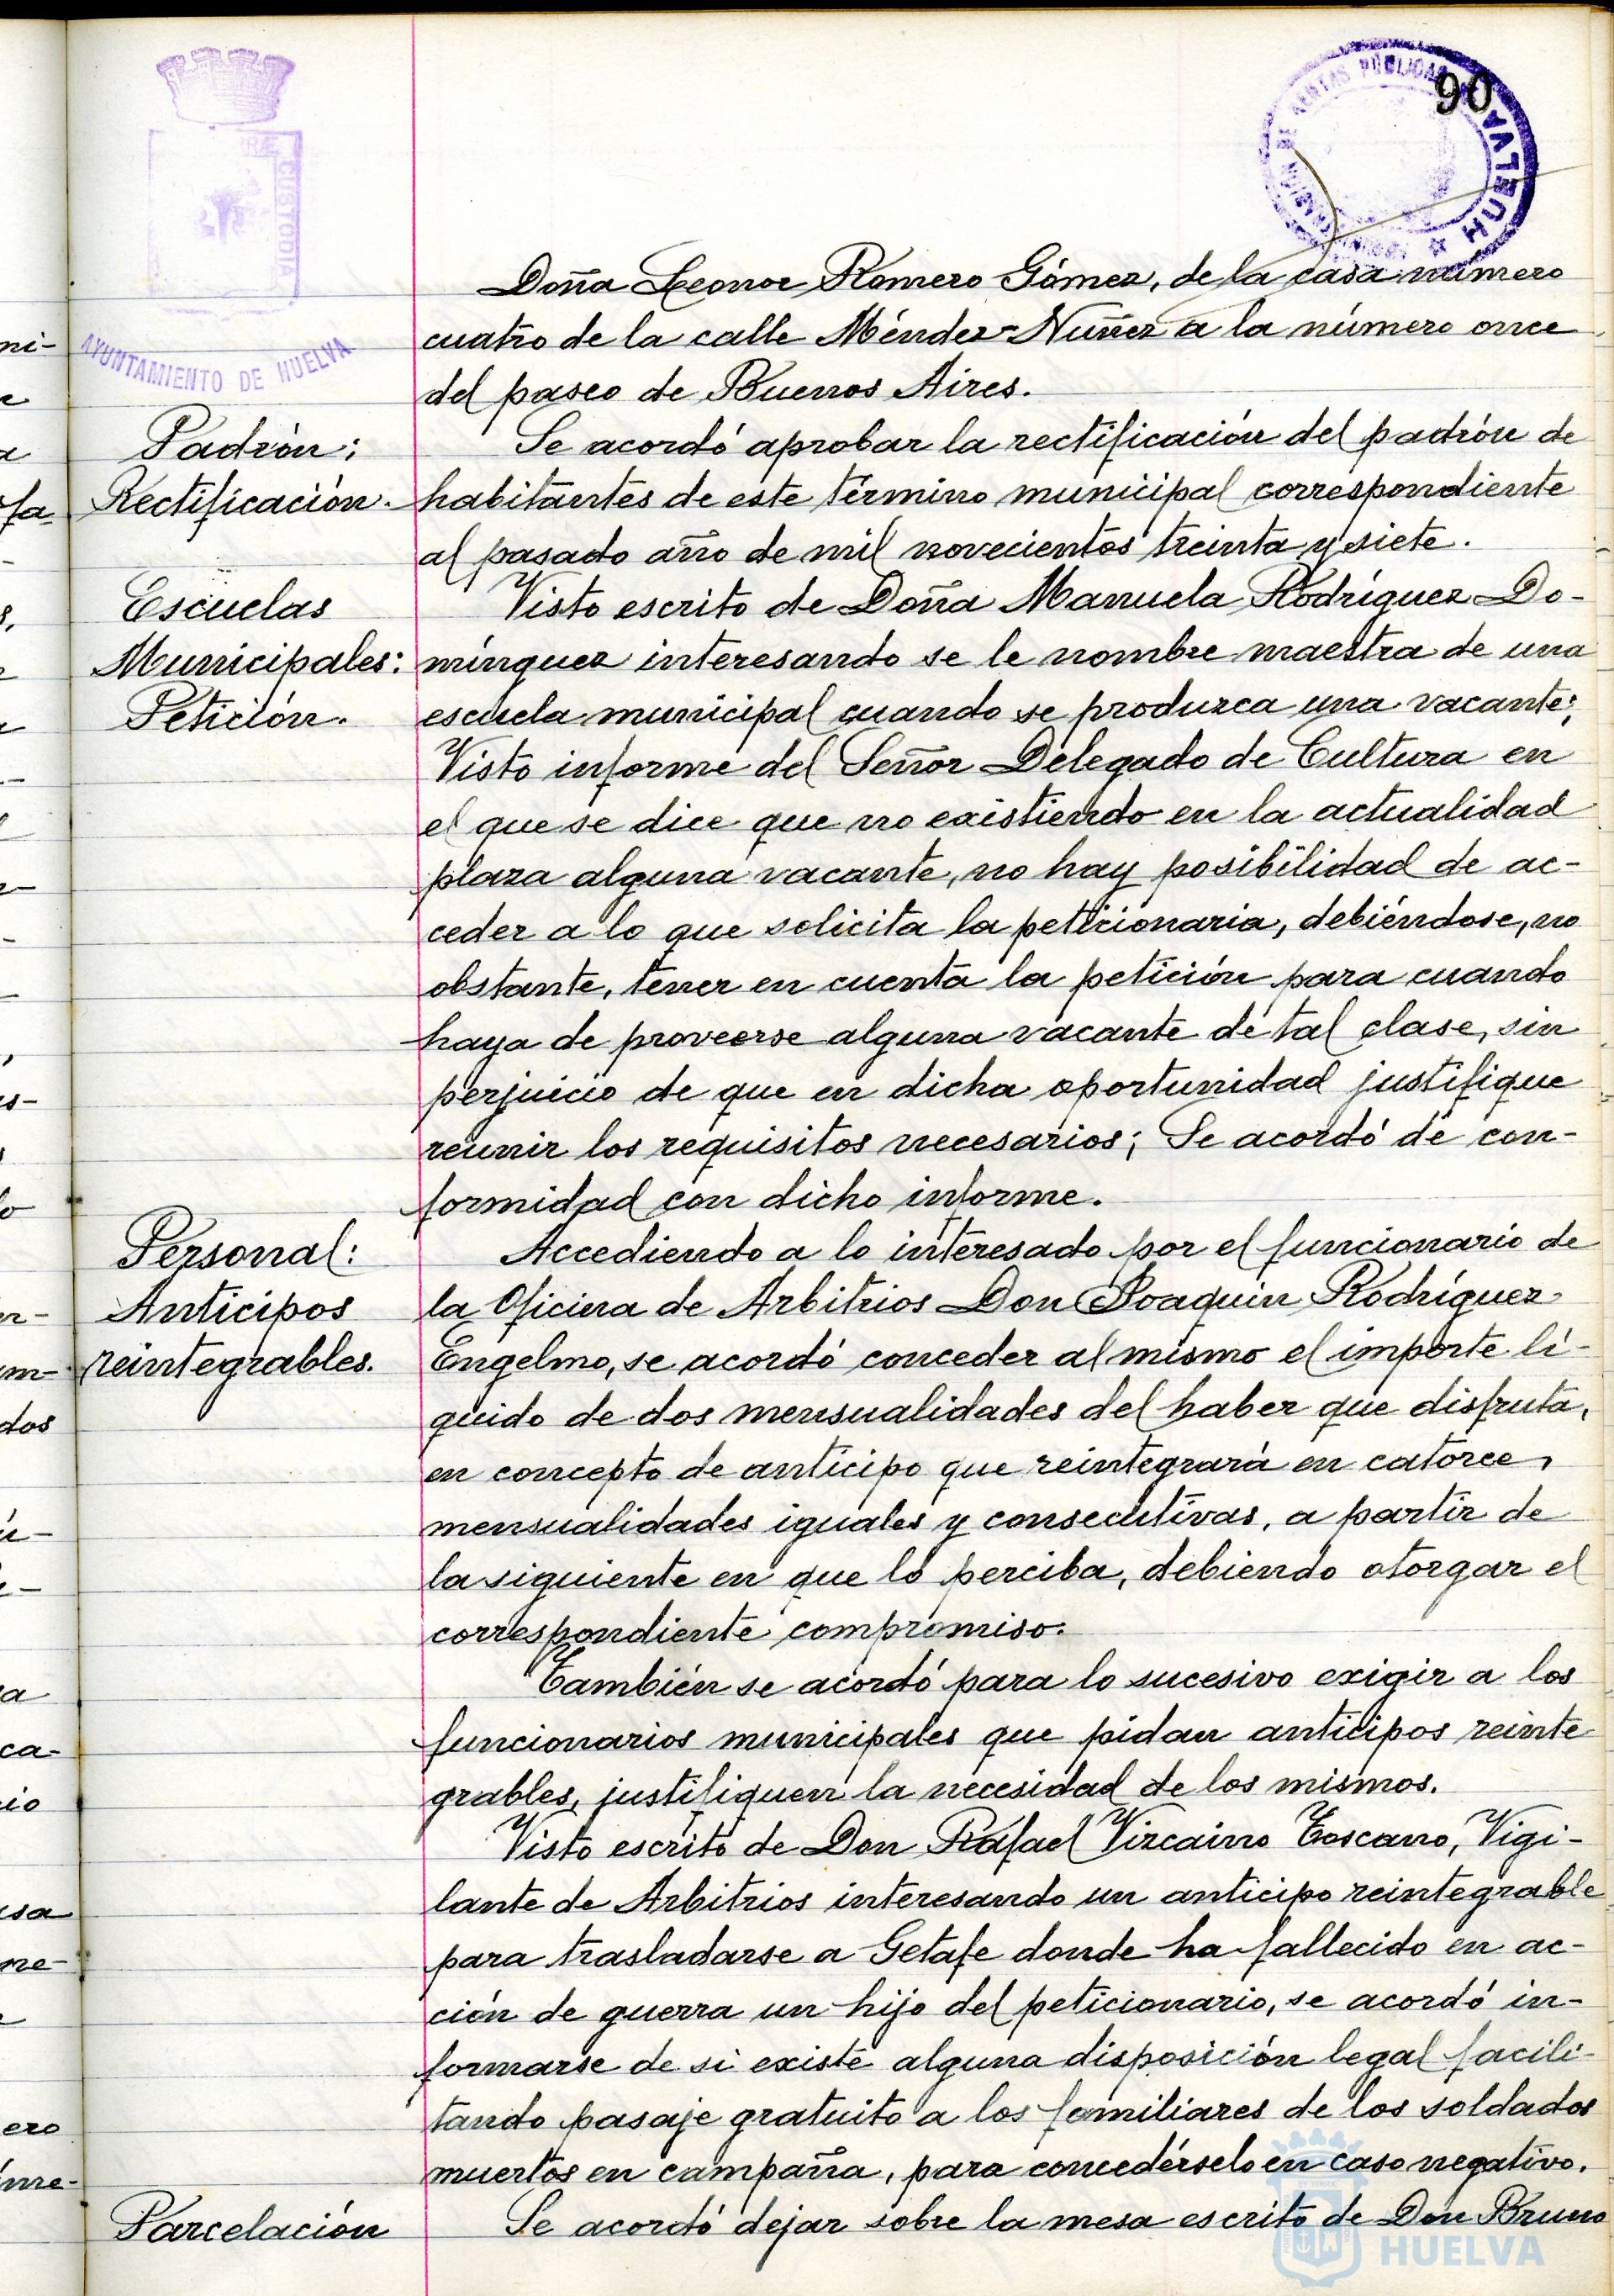 90
HUELVA
AYUNTAMIENTO DE HUELVA
CUSTODIA
Doña Leonor Romero Gómez, de la casa número
cuatro de la calle Méndez-Nuñez a la número once
del paseo de Buenos Aires.
Padrón:
Rectificación.
Se acordó aprobar la rectificación del padrón de
habitantes de este término municipal correspondiente
al pasado año de mil novecientos treinta y siete.
Escuelas
Municipales:
Petición.
Visto escrito de Doña Manuela Rodríguez Do-
mínguez interesando se le nombre maestra de una
escuela municipal cuando se produzca una vacante;
Visto informe del Señor Delegado de Cultura en
el que se dice que no existiendo en la actualidad
plaza alguna vacante, no hay posibilidad de ac-
ceder a lo que solicita la peticionaria, debiéndose, no
obstante, tener en cuenta la petición para cuando
haya de proveerse alguna vacante de tal clase, sin
perjuicio de que en dicha oportunidad justifique
reunir los requisitos necesarios; Se acordó de con-
formidad con dicho informe.
Personal:
Anticipos
reintegrables.
Accediendo a lo interesado por el funcionario de
la Oficina de Arbitrios Don Joaquín Rodríguez
Engelmo, se acordó conceder al mismo el importe lí-
quido de dos mensualidades del haber que disfruta,
en concepto de anticipo que reintegrará en catorce
mensualidades iguales y consecutivas, a partir de
la siguiente en que lo perciba, debiendo otorgar el
correspondiente compromiso.
También se acordó para lo sucesivo exigir a los
funcionarios municipales que pidan anticipos reinte
grables, justifiquen la necesidad de los mismos.
Visto escrito de Don Rafael Vizcaino Toscano, Vigi-
lante de Arbitrios interesando un anticipo reintegrable
para trasladarse a Getafe donde ha fallecido en ac-
ción de guerra un hijo del peticionario, se acordó in-
formarse de si existe alguna disposición legal facili-
tando pasaje gratuito a los familiares de los soldados
muertos en campaña, para concedérselo en caso negativo.
Parcelación
Se acordó dejar sobre la mesa escrito de Don Bruno
HUELVA